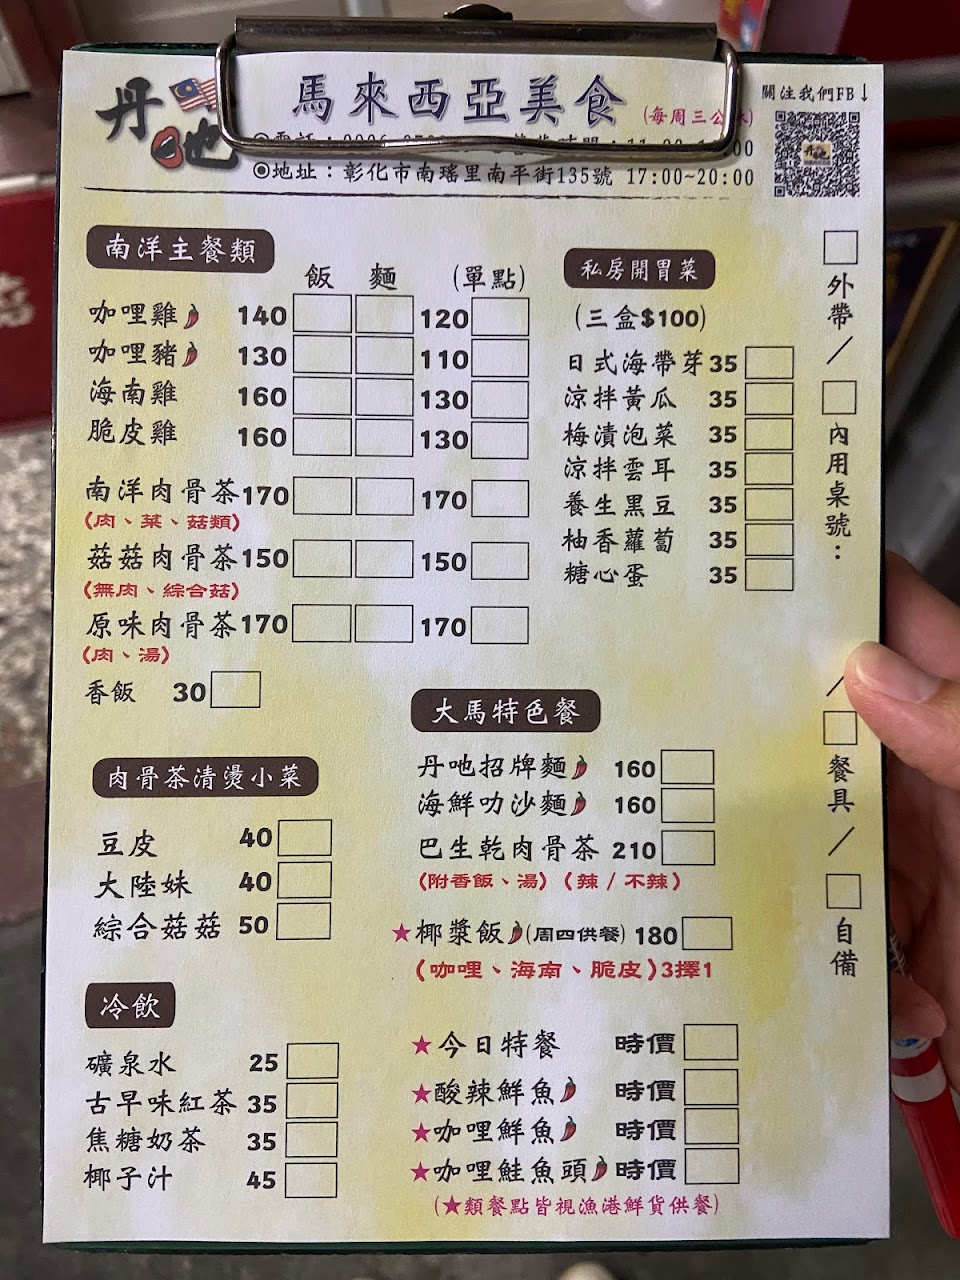 丹吔
馬來西亞美食
(每周三公休)
關注我們FB↓
◎地址：彰化市南瑤里南平街135號 17:00~20:00
南洋主餐類
飯 麵 (單點)
咖哩雞 140 120
咖哩豬 130 110
海南雞 160 130
脆皮雞 160 130
南洋肉骨茶 170 170
(肉、菜、菇類)
菇菇肉骨茶 150 150
(無肉、綜合菇)
原味肉骨茶 170 170
(肉、湯)
香飯 30
肉骨茶清燙小菜
豆皮 40
大陸妹 40
綜合菇菇 50
冷飲
礦泉水 25
古早味紅茶 35
焦糖奶茶 35
椰子汁 45
私房開胃菜
(三盒$100)
日式海帶芽 35
涼拌黃瓜 35
梅漬泡菜 35
涼拌雲耳 35
養生黑豆 35
柚香蘿蔔 35
糖心蛋 35
大馬特色餐
丹吔招牌麵 160
海鮮叻沙麵 160
巴生乾肉骨茶 210
(附香飯、湯)(辣/不辣)
★椰漿飯(周四供餐) 180
(咖哩、海南、脆皮)3擇1
★今日特餐 時價
★酸辣鮮魚 時價
★咖哩鮮魚 時價
★咖哩鮭魚頭 時價
(★類餐點皆視漁港鮮貨供餐)
□外帶/□內用桌號：
/□餐具/□自備